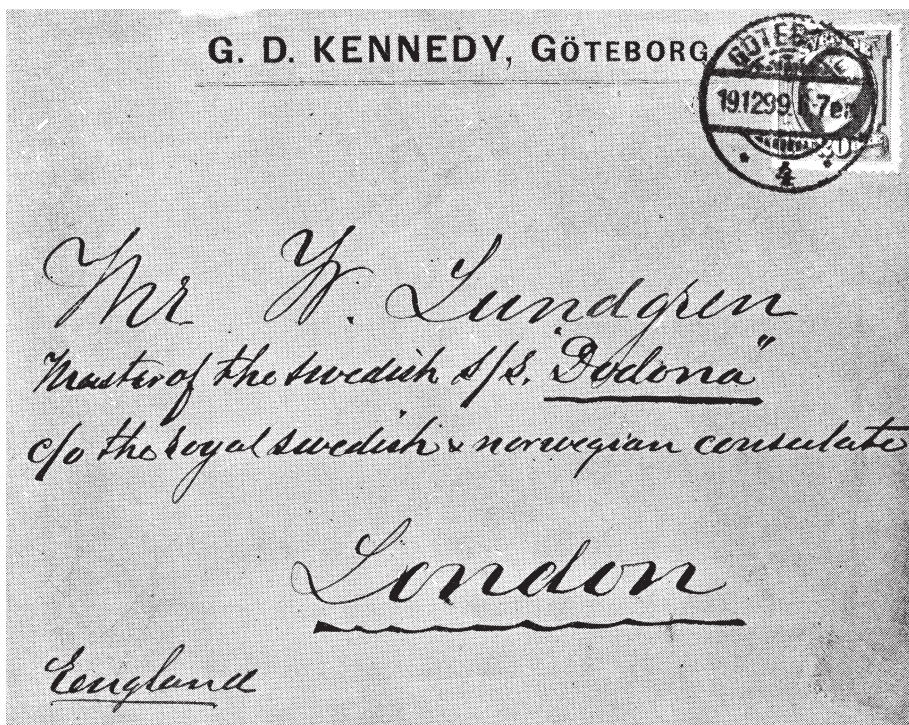 G. D. KENNEDY, GÖTEBORG
GÖTEB
19.12.99. 6-7em
20
Mr W. Lundgren
Master of the swedish s/s. "Dodona"
c/o the royal swedish & norwegian consulate
London
Eengland